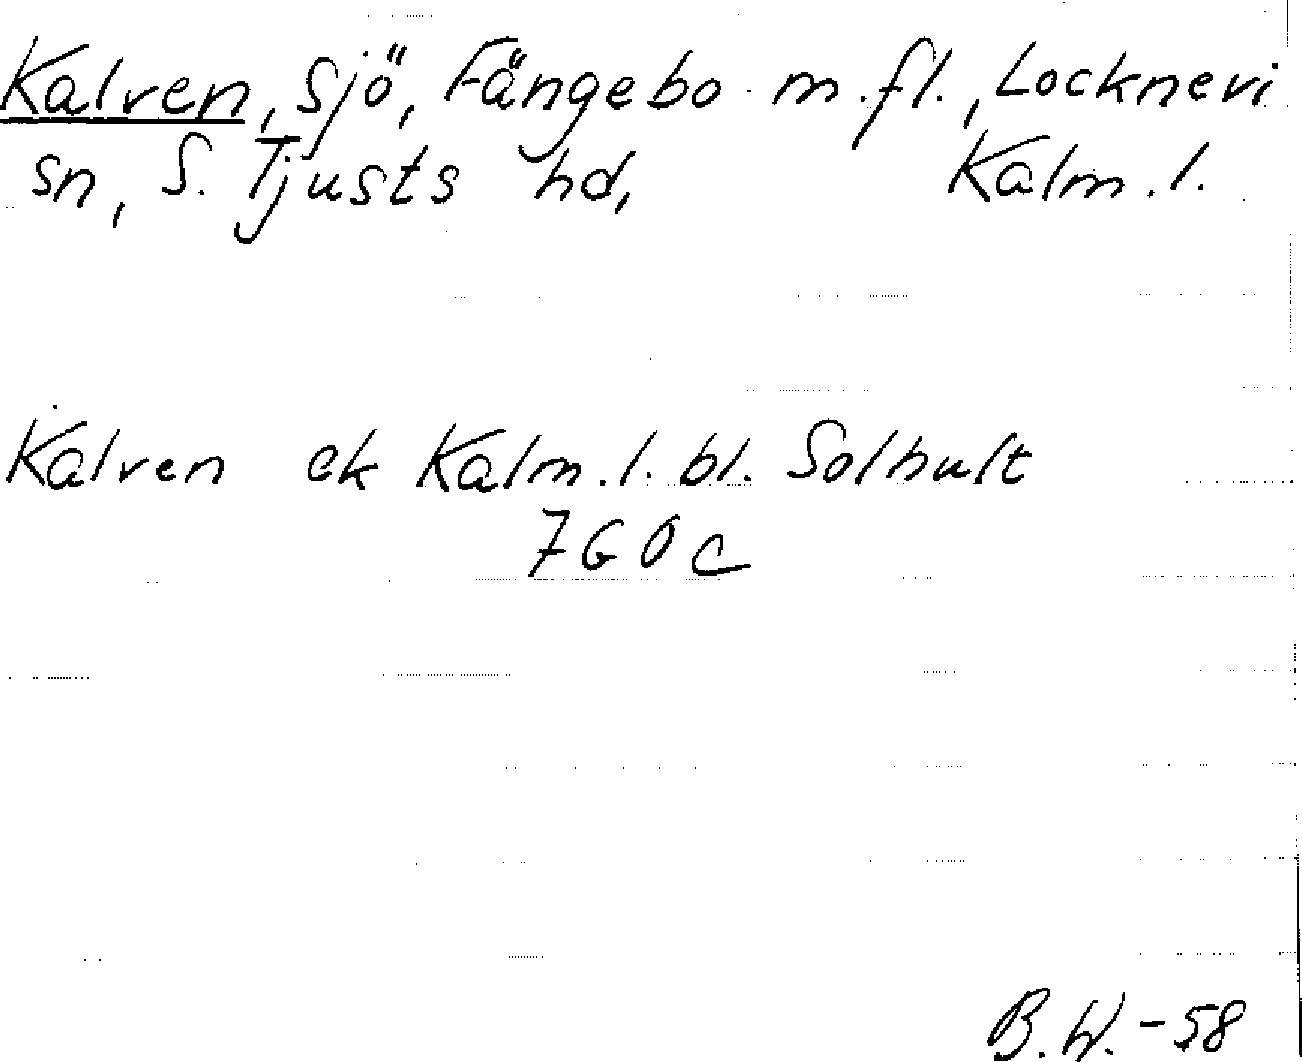 Kalven, sjö, Fängebo m.fl., Locknevi
sn, S. Tjusts hd, Kalm.l.
Kalven ek Kalm.l. bl. Solhult
7G0c
B.W.-58